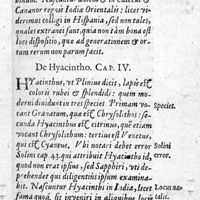 Cananor regis Iudia Orientali: licet vi-
derimus colligi in Hispania, sed non tales,
quales extranei sunt: quia non tàm bona est
loci dispositio, quæ ad generationem & or-
tum rerum non parum facit.
De Hyacintho. CAP. IV.
HYacinthus, vt Plinius dicit, lapis est
coloris rubei & splendidi: quem mo-
derni diuidunt in tres species. Primam vo- Species.
cant Granatum, quæ est Chrysolithos: se-
cunda Hyacinthus est citrinus, quem etiam
vocant Chrysolithum: tertius est Venetus,
qui est Cyaneus, Vbi notari debet error Solini
Solini cap. 43. qui attribuit Hyacintho id, error.
quod non erat ipsi, sed Sapphiri, vti de-
prehendet qui diligenter ipsum examina-
bit. Nascuntur Hyacinthi in India, licet Locus na-
fama quoq; sit inueniri in aliquibus locis talis.